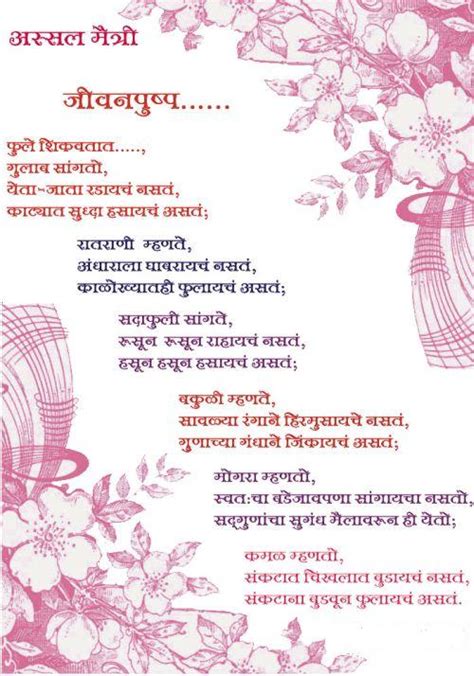 अस्सल मैत्री
जीवनपुष्प......
फुले शिकवतात.....,
गुलाब सांगतो,
येता-जाता रडायचं नसतं,
काट्यात सुध्दा हसायचं असतं;
रातराणी म्हणते,
अंधाराला घाबरायचं नसतं,
काळोख्यातही फुलायचं असतं;
सदाफुली सांगते,
रूसून रूसून राहायचं नसतं,
हसून हसून हसायचं असतं;
बकुळी म्हणते,
सावळ्या रंगाने हिरमुसायचे नसतं,
गुणाच्या गंधाने जिंकायचं असतं;
मोगरा म्हणतो,
स्वतःचा बडेजावपणा सांगायचा नसतो,
सद्गुणांचा सुगंध मैलावरून ही येतो;
कमळ म्हणतो,
संकटात चिखलात बुडायचं नसतं,
संकटाना बुडवून फुलायचं असतं.